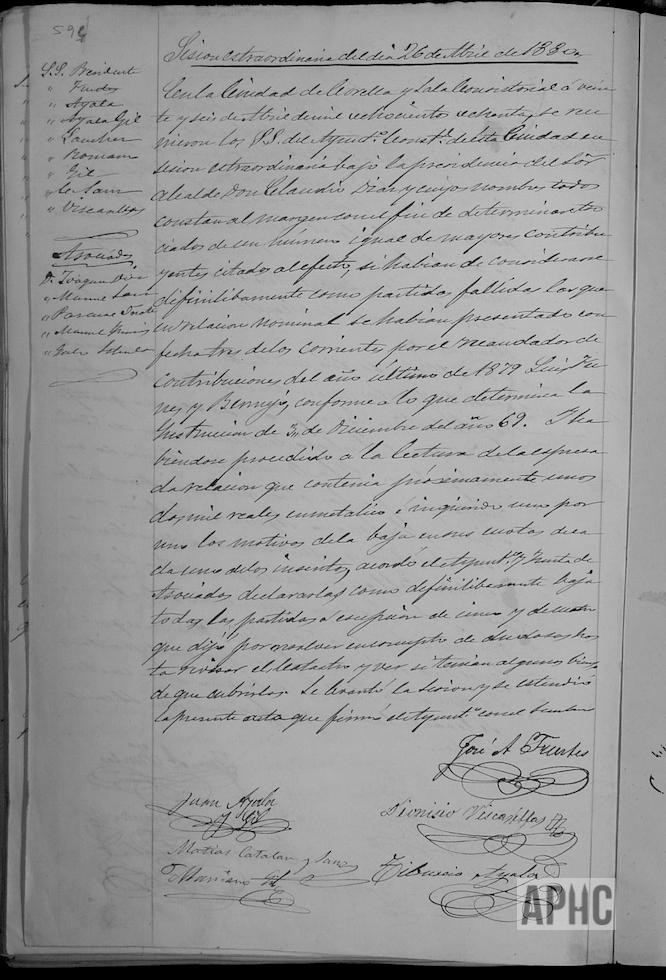 594
Sesion extraordinaria del dia 26 de Abril de 1880
S.S. Presidente
" Ayala
" Ayala Gil
" Sanchez
" Romani
" Gil
" Viscasillas
Asociados
D. Joaquin Dias
" Manuel
" Pascual
" Manuel
En la Ciudad de Corella y Sala Consistorial á vein
te y seis de Abril de mil ochocientos ochenta, se reu
nieron los S.S. del Ayunto. Constl. de esta Ciudad en
sesion extraordinaria bajo la presidencia del Sor.
Alcalde Don Claudio Dias y cuyos nombres todos
constan al margen con el fin de determinar aso
ciados de un número igual de mayores contribu
yentes citados al efecto, si habian de considerarse
definitibamente como partidas fallidas las que
en relacion nominal se habian presentado con
fecha tres de los corrientes por el recaudador de
contribuciones del año último de 1879 Luis Fu
nes y Bermejo, conforme a lo que determina la
Instruccion de 3 de Diciembre del año 69. Y ha
biendose procedido a la lectura de la espresa
da relacion que contenia próximamente unos
dos mil reales en metalico é inquirido uno por
uno los motivos de la baja en sus cuotas de ca
da uno de los inscritos, acordó el Ayunto. y Junta de
Asociados declararlas como definitibamente baja
todas las partidas á escepcion de cinco y de cuatro
que dejó por resolver en concepto de dudosas has
ta revisar el Catastro y ver si tenian algunos bienes
de que cubrirlas. Se lebantó la sesion y se estendió
la presente acta que firmó el Ayunto. con el
José A. Fuertes
Juan Ayala
y Gil
Dionisio Viscasillas
Matias Catalan y Sanz
Mariano Gil
Tiburcio Ayala
APHC